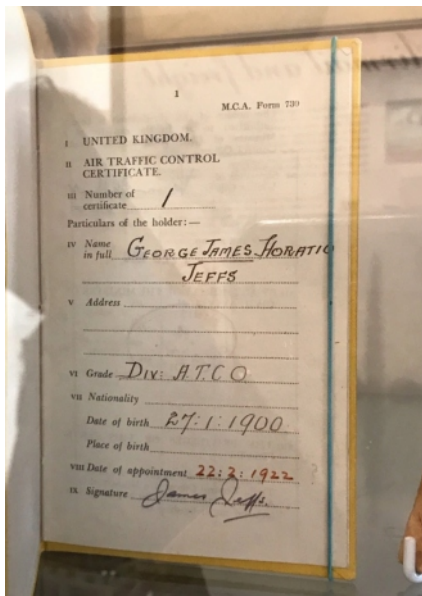 1
M.C.A. Form 739
I UNITED KINGDOM.
II AIR TRAFFIC CONTROL
CERTIFICATE.
III Number of
certificate 1
Particulars of the holder:—
IV Name
in full GEORGE JAMES HORATIO
JEFFS
V Address
VI Grade DIV: A.T.C.O.
VII Nationality
Date of birth 27:1:1900
Place of birth
VIII Date of appointment 22:2:1922
IX Signature James Jeffs.